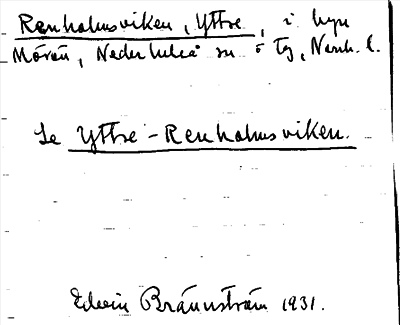 Renholmsviken, Yttre, i byn
Mörön, Nederluleå sn o tg, Norrb. l.
Se Yttre-Renholmsviken.
Edvin Brännström 1931.